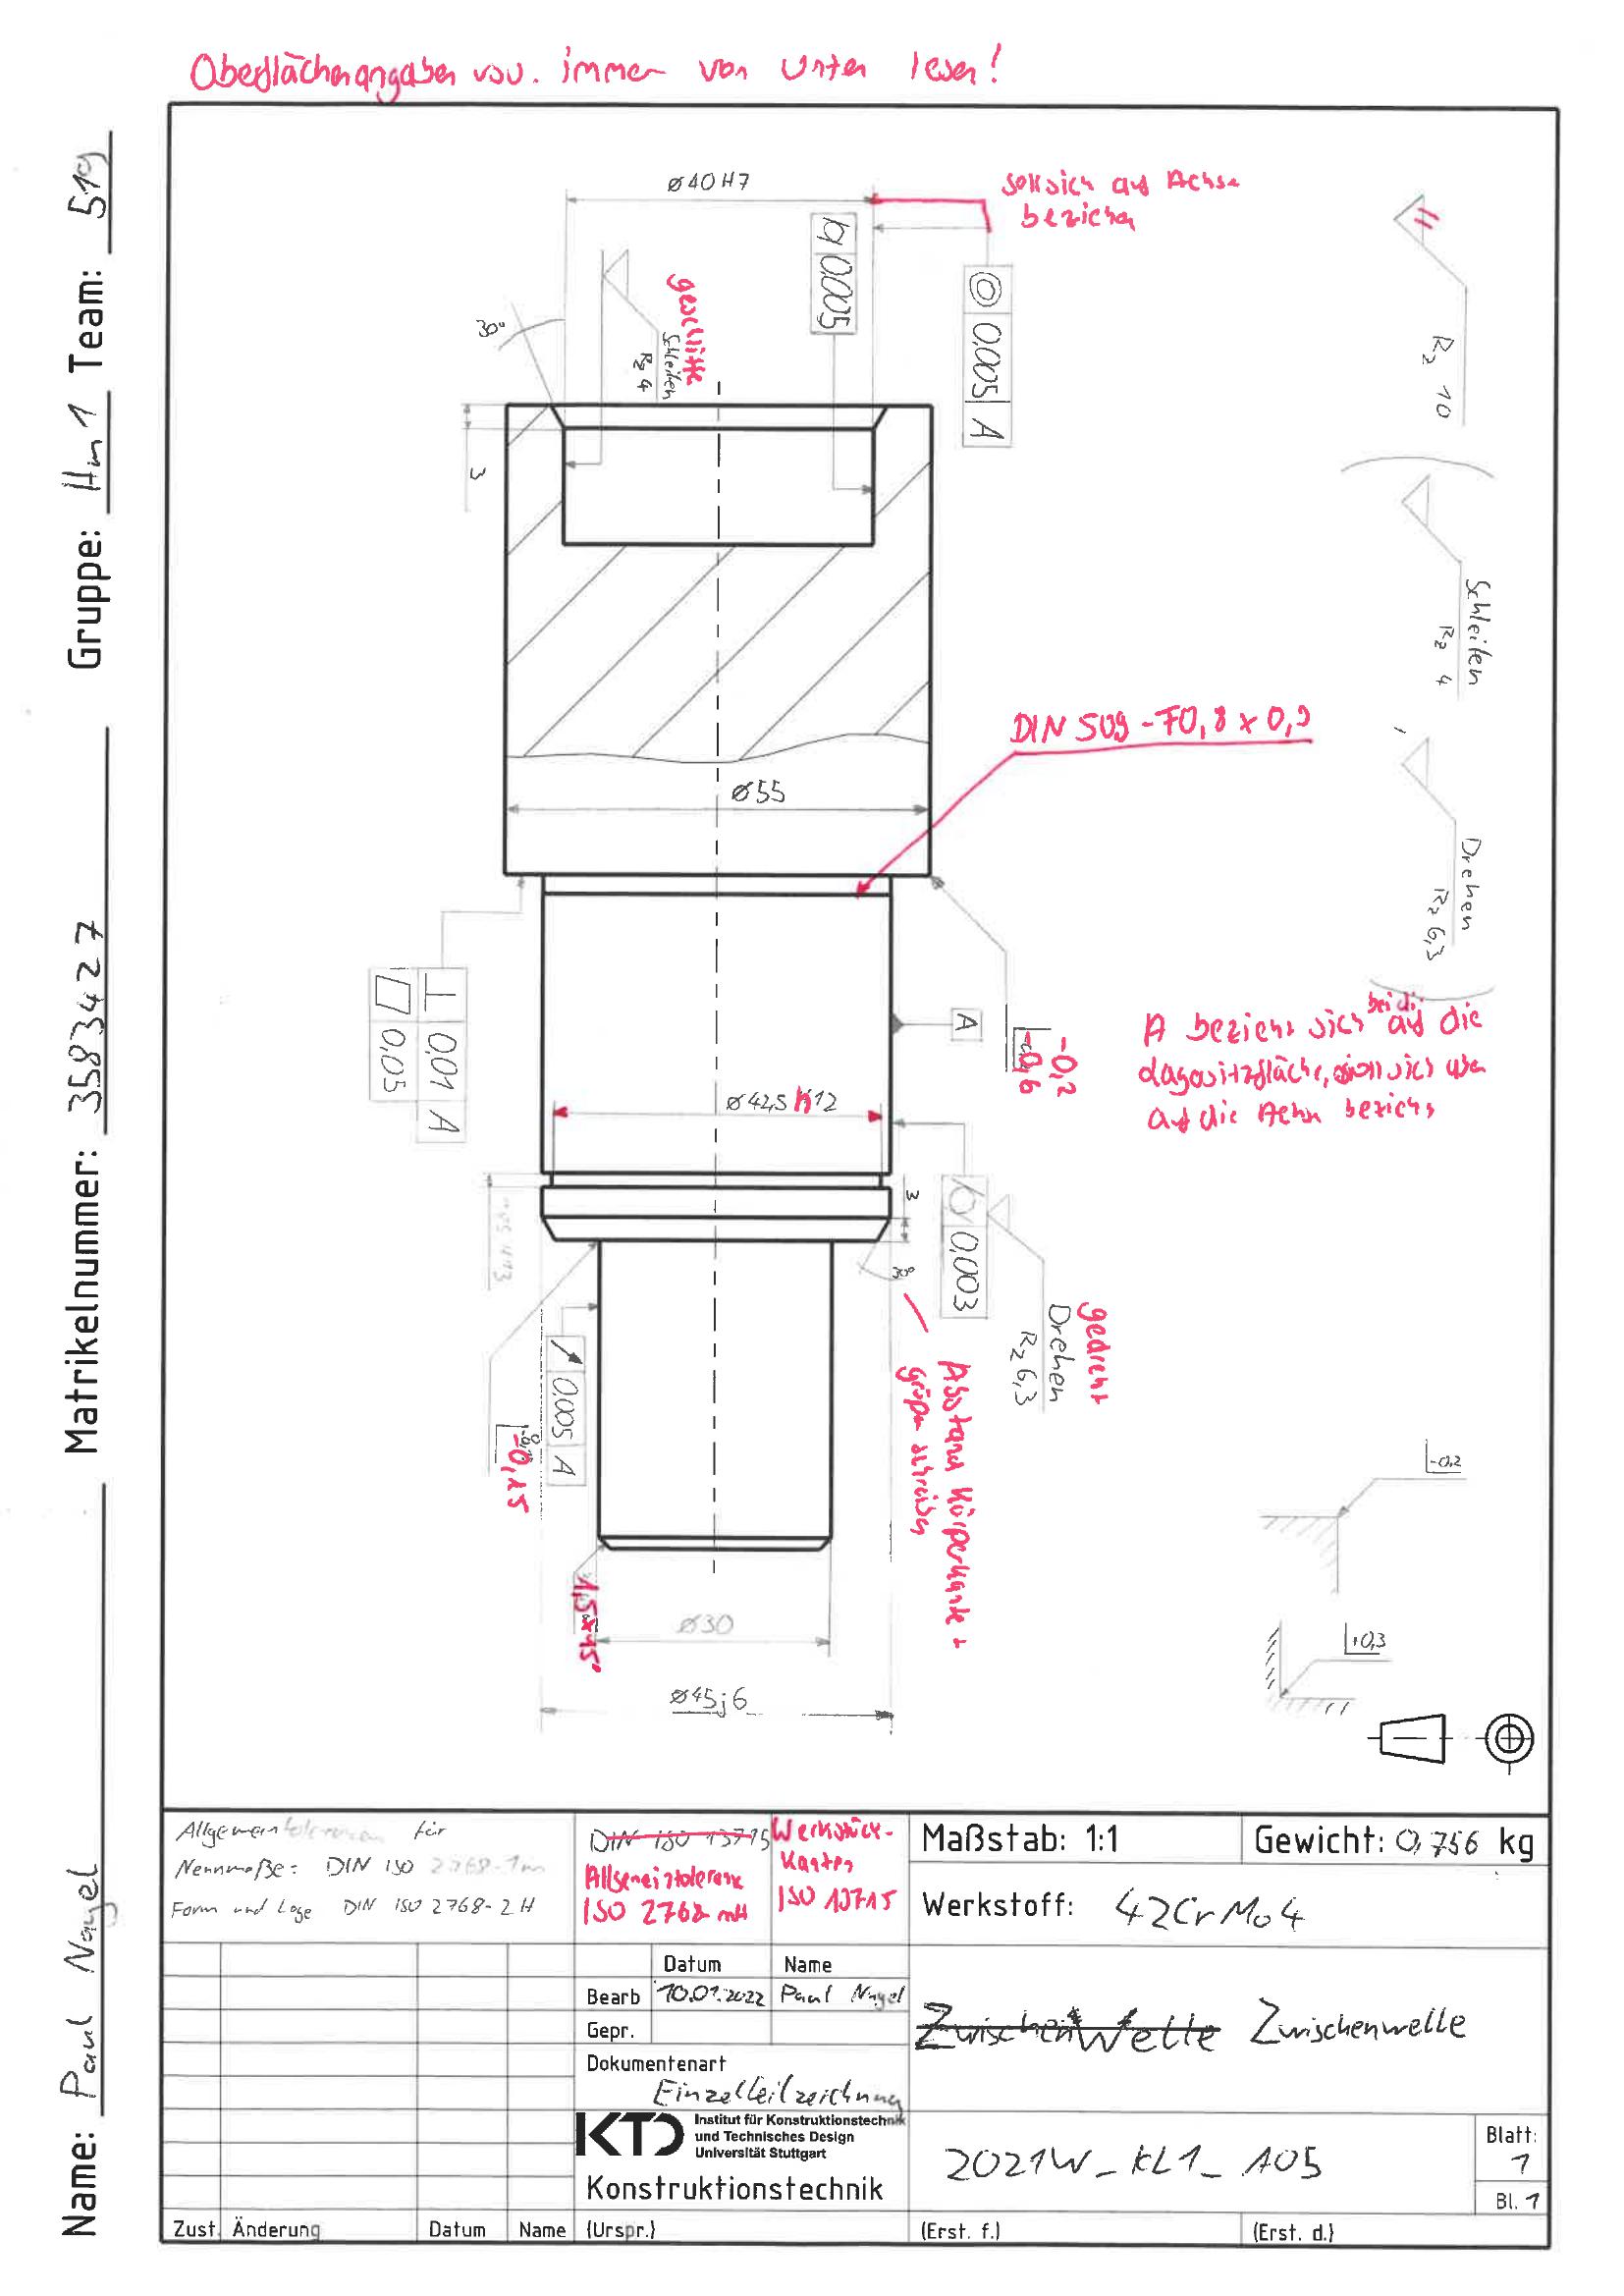 Oberflächenangaben vsv. immer von unten lesen!
Name: Paul Nagel Matrikelnummer: 3583427 Gruppe: Hm1 Team: 519
⌀40H7
soll sich auf Achse
beziehen
0,005
0,005 A
30°
geschliffe
Schleifen
Rz 4
3
Rz 10
Schleifen
Rz 4
Drehen
Rz 6,3
DIN 509 - F0,8 x 0,3
⌀55
0,01 A
0,05
A
-0,2
-0,6
A bezieht sich bei dir auf die
auf die Achse beziehen
⌀42,5 h12
3
30°
0,003
gedreht
Drehen
Rz 6,3
0,005 A
Abstand Körperkante +
größer schreiben
1,5x45°
⌀30
⌀45j6
-0,2
+0,3
Allgemeintoleranzen für
Nennmaße: DIN ISO 2768-1m
Form und Lage DIN ISO 2768-2H
DIN ISO 13715
Allgemeintoleranz
ISO 2768-mH
Werkstück-
kanten
ISO 13715
Maßstab: 1:1
Gewicht: 0,756 kg
Werkstoff: 42CrMo4
Datum Name
Bearb 10.01.2022 Paul Nagel
Gepr.
Zwischenwelle Zwischenwelle
Dokumentenart
Einzelteilzeichnung
KTD Institut für Konstruktionstechnik
und Technisches Design
Universität Stuttgart
Konstruktionstechnik
2021W_KL1_A05
Blatt:
1
Bl. 1
Zust. Änderung Datum Name (Urspr.) (Erst. f.) (Erst. d.)